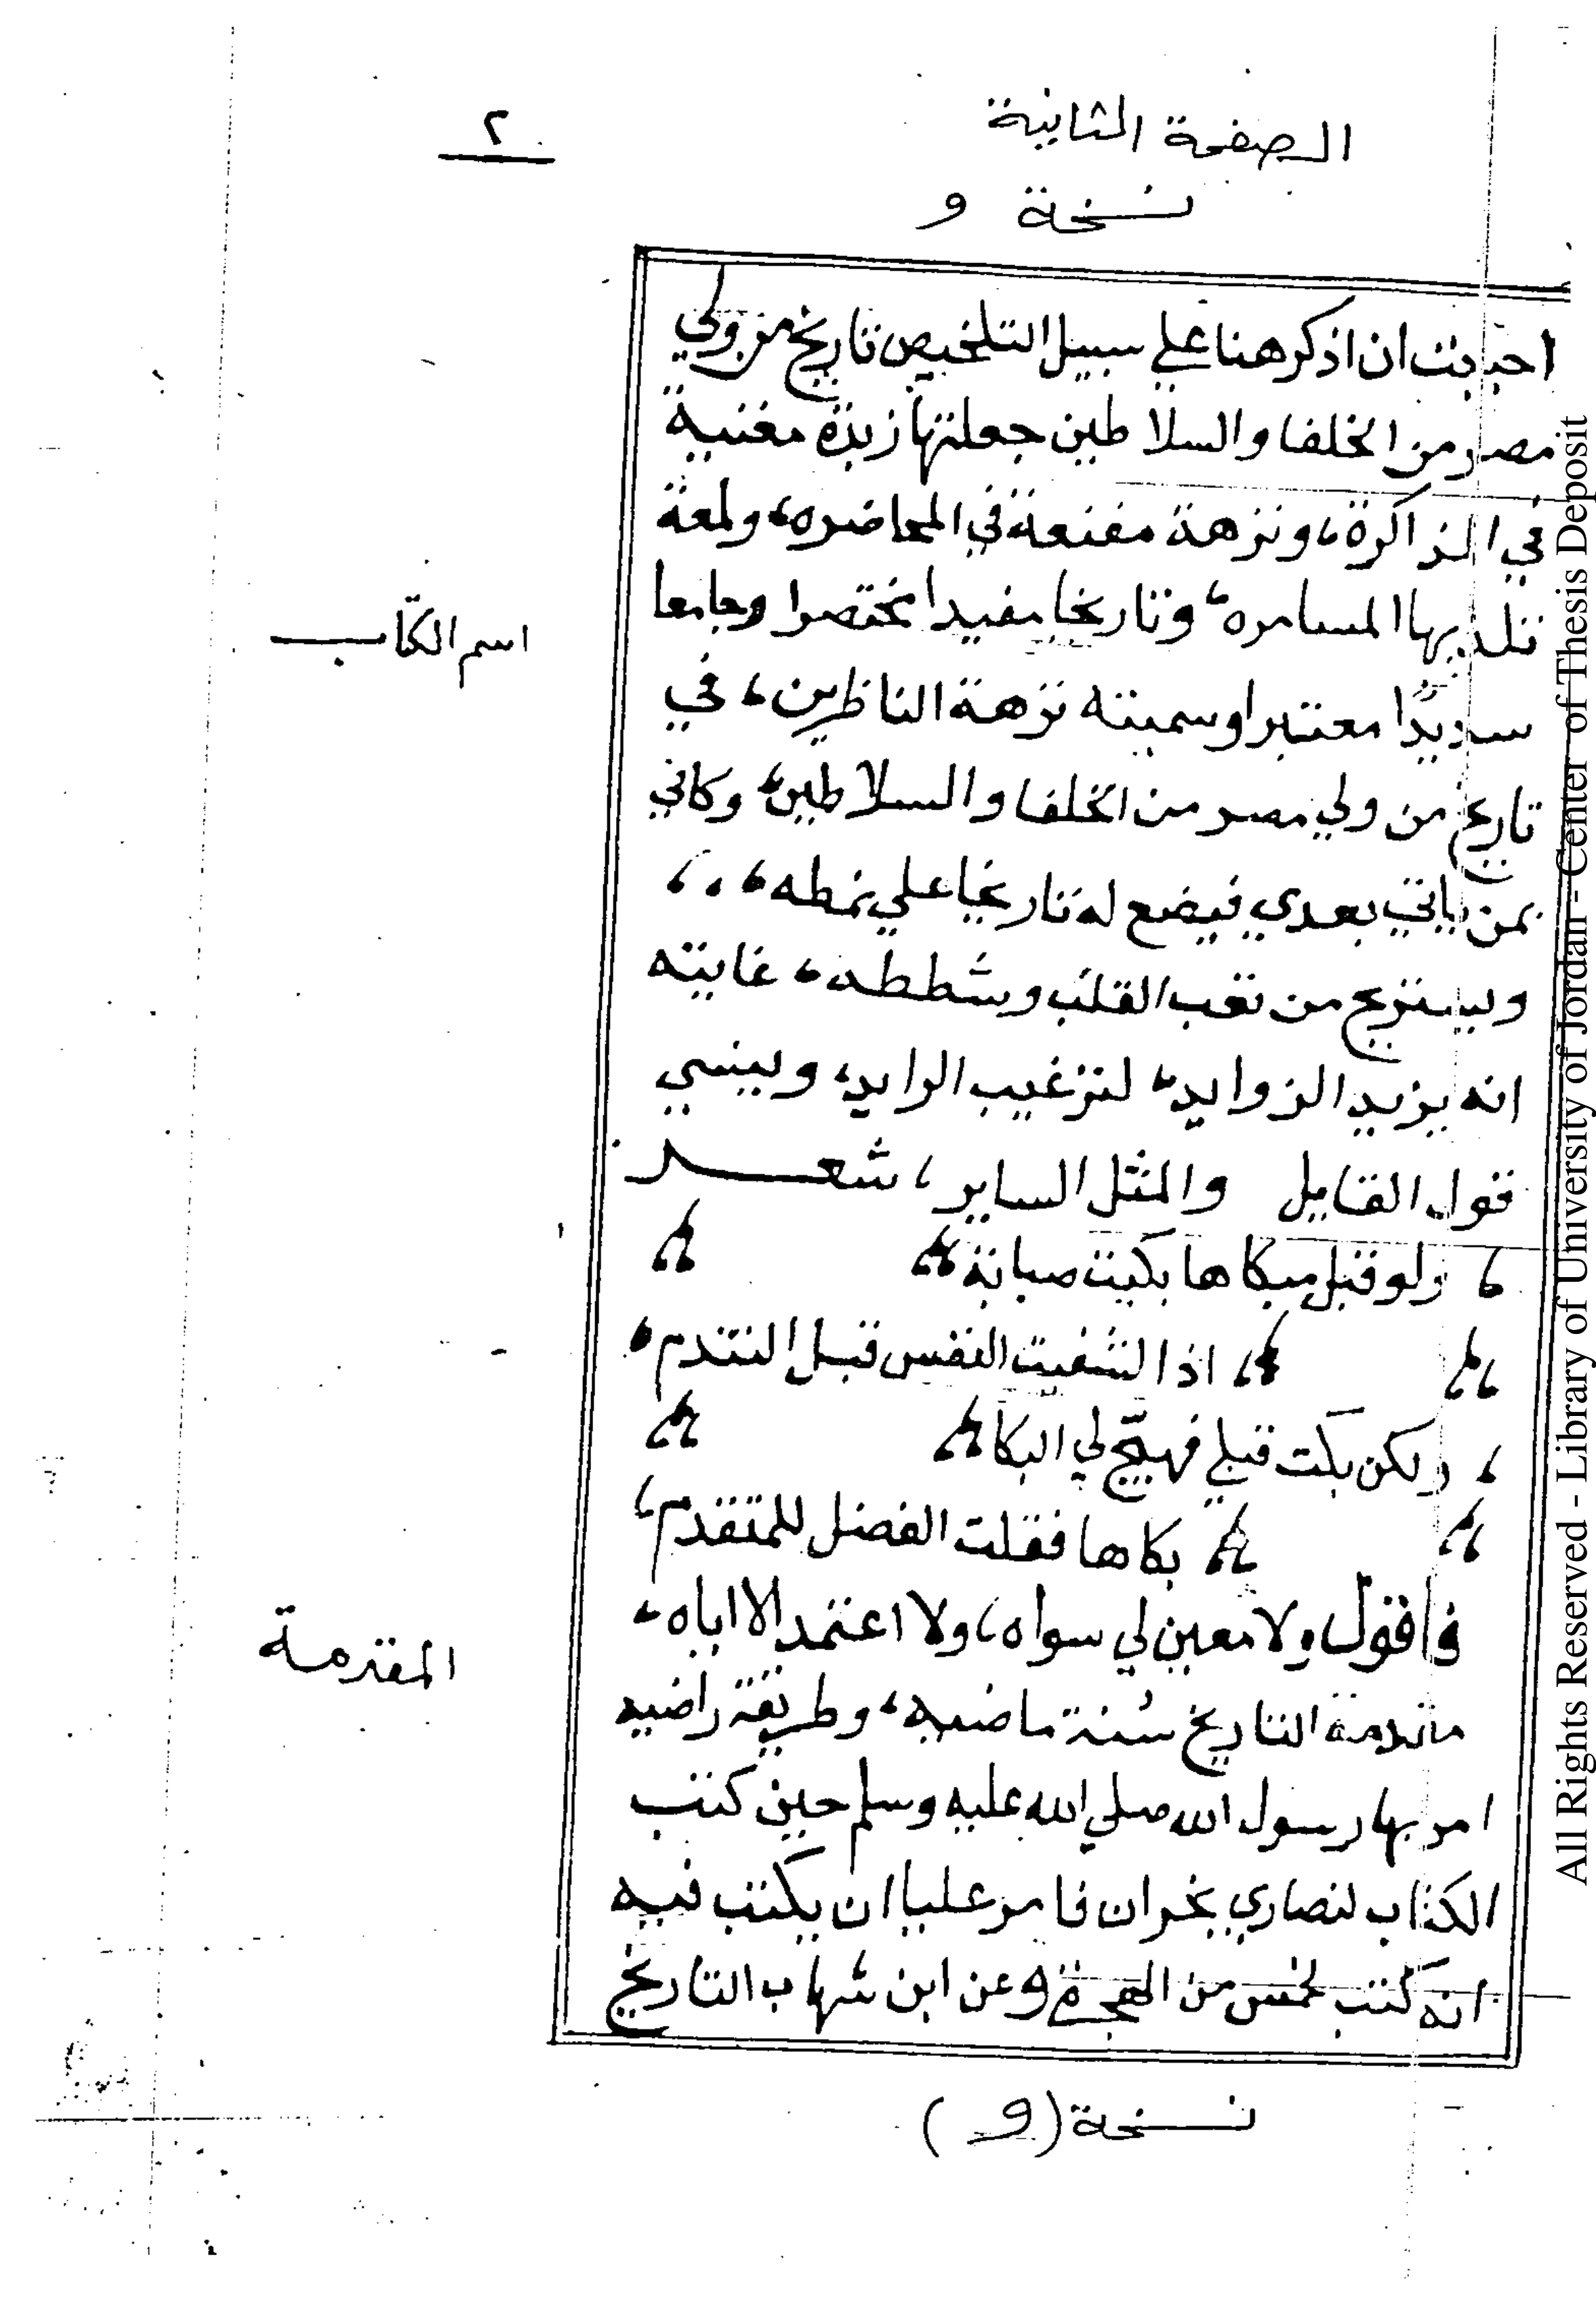 الصفحة الثانية
٢
نسخة و
احببت ان اذكر هنا علي سبيل التلخيص تاريخ من ولي
مصر من الخلفا والسلاطين جعلتها زبدة مغنية
في المذاكرة، ونزهة مقنعة في المحاضره، ولمعة
تلذ بها المسامره، وتاريخا مفيدا مختصرا وجامعا
اسم الكتاب
سديدًا معتبرا وسميته نزهة الناظرين، في
تاريخ من ولي مصر من الخلفا والسلاطين، وكاني
بمن ياتي بعدي فيضع له تاريخا علي نمطه،،،
ويستريح من تعب القلب وشططه، غايته
انه يزيد الزوايد، لترغيب الرايد، وينسي
قول القايل والمثل الساير، شعر
ولو قبل مبكاها بكيت صبابة
اذا لشفيت النفس قبل التندم،
ولكن بكت قبلي فهيّج لي البكا
بكاها فقلت الفضل للمتقدم،
فاقول ولا معين لي سواه، ولا اعتمد الا اياه،
المقدمة
مقدمة التاريخ سُنة ماضيه، وطريقة راضيه
امر بها رسول الله صلي الله عليه وسلم حين كتب
الكتاب لنصاري نجران فامر عليا ان يكتب فيه
انه كتب لخمس من الهجرة وعن ابن شهاب التاريخ
نسخة (و)
All Rights Reserved - Library of University of Jordan - Center of Thesis Deposit